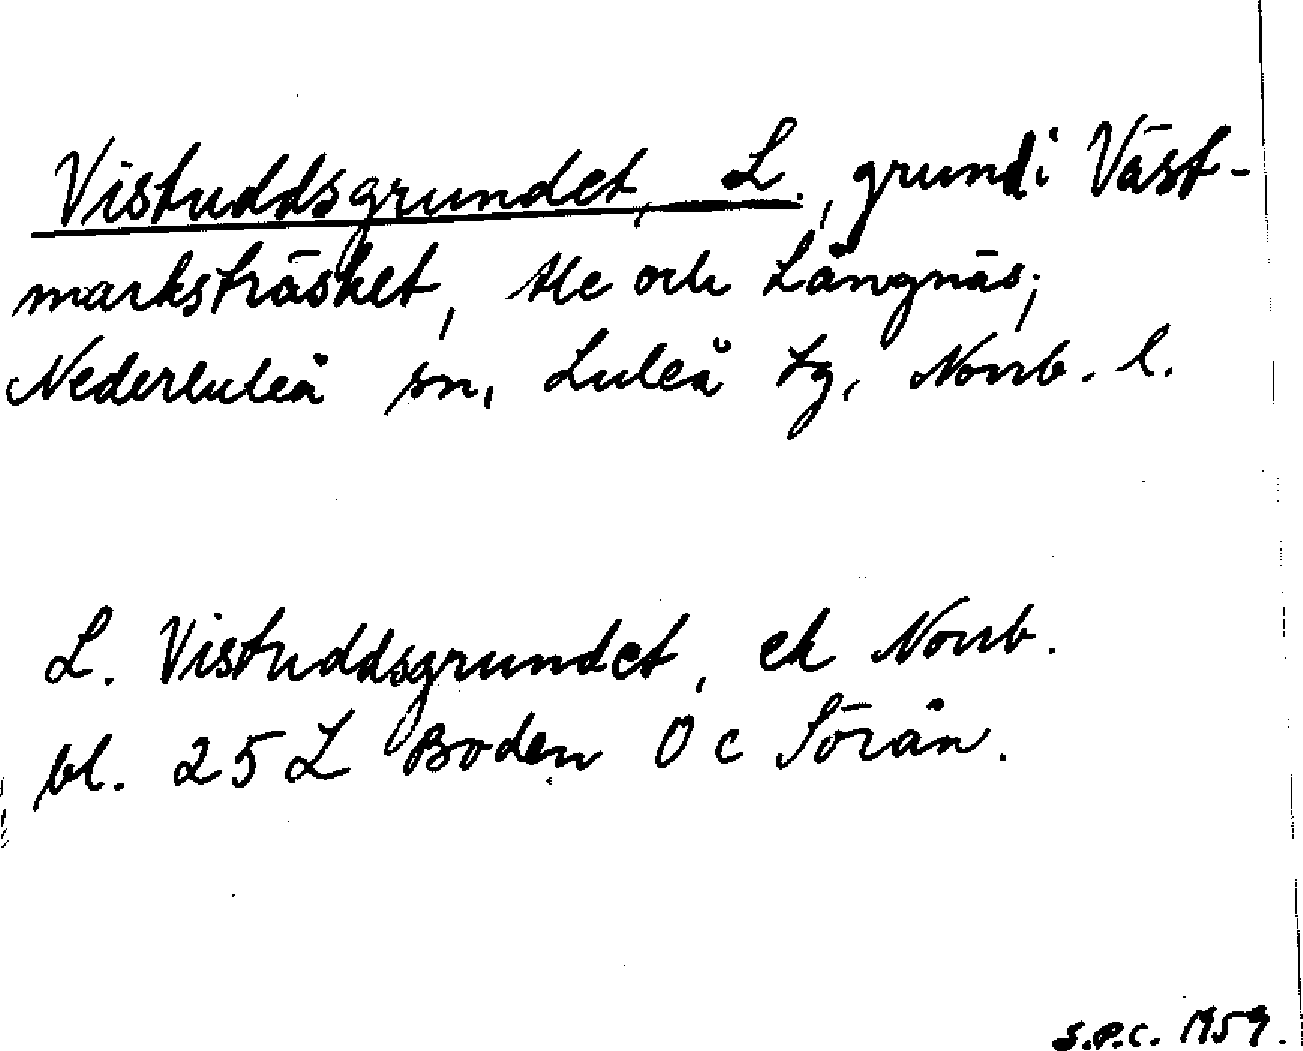 Vistuddsgrundet, L., grund i Väst-
marksträsket, Ale och Långnäs;
Nederluleå sn, Luleå tg, Norrb. l.
L. Vistuddsgrundet, ek Norrb.
bl. 25 L Boden 0 c Sörån.
S.P.C. 1959.